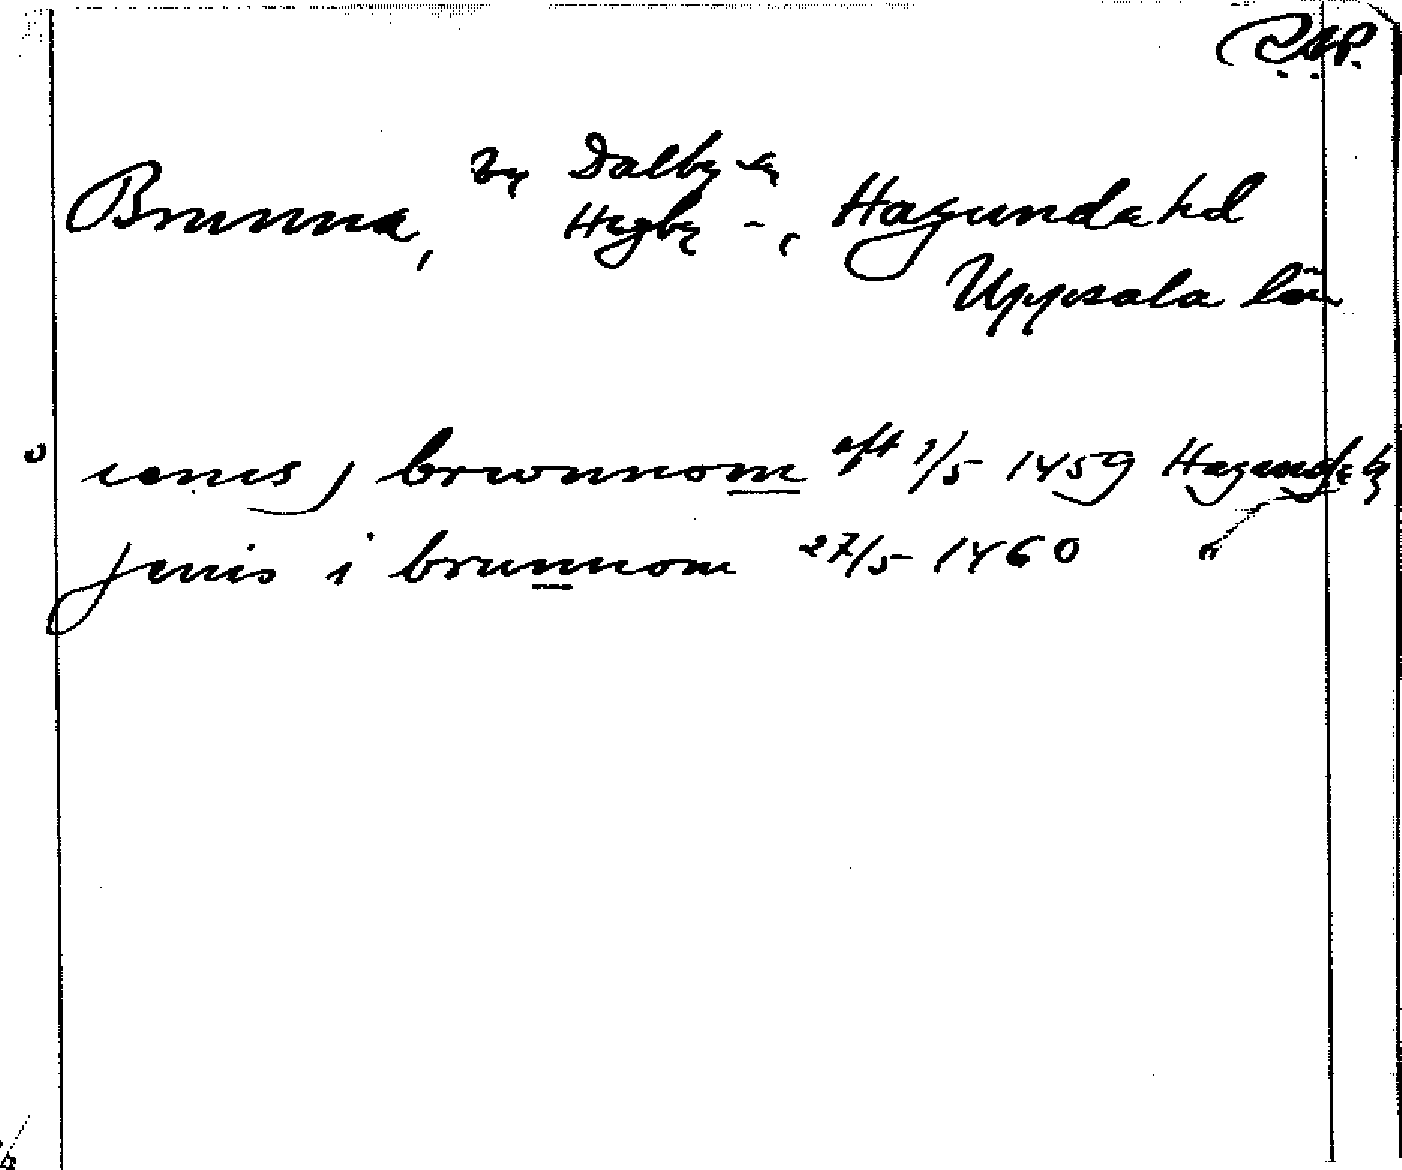 Brunna, by Dalby sn
Hagby -, Hagunda hd
Uppsala län
ienis j brwnnom eft 1/5 1459 Hagunda
jenis i brunnom 27/5 1460 "